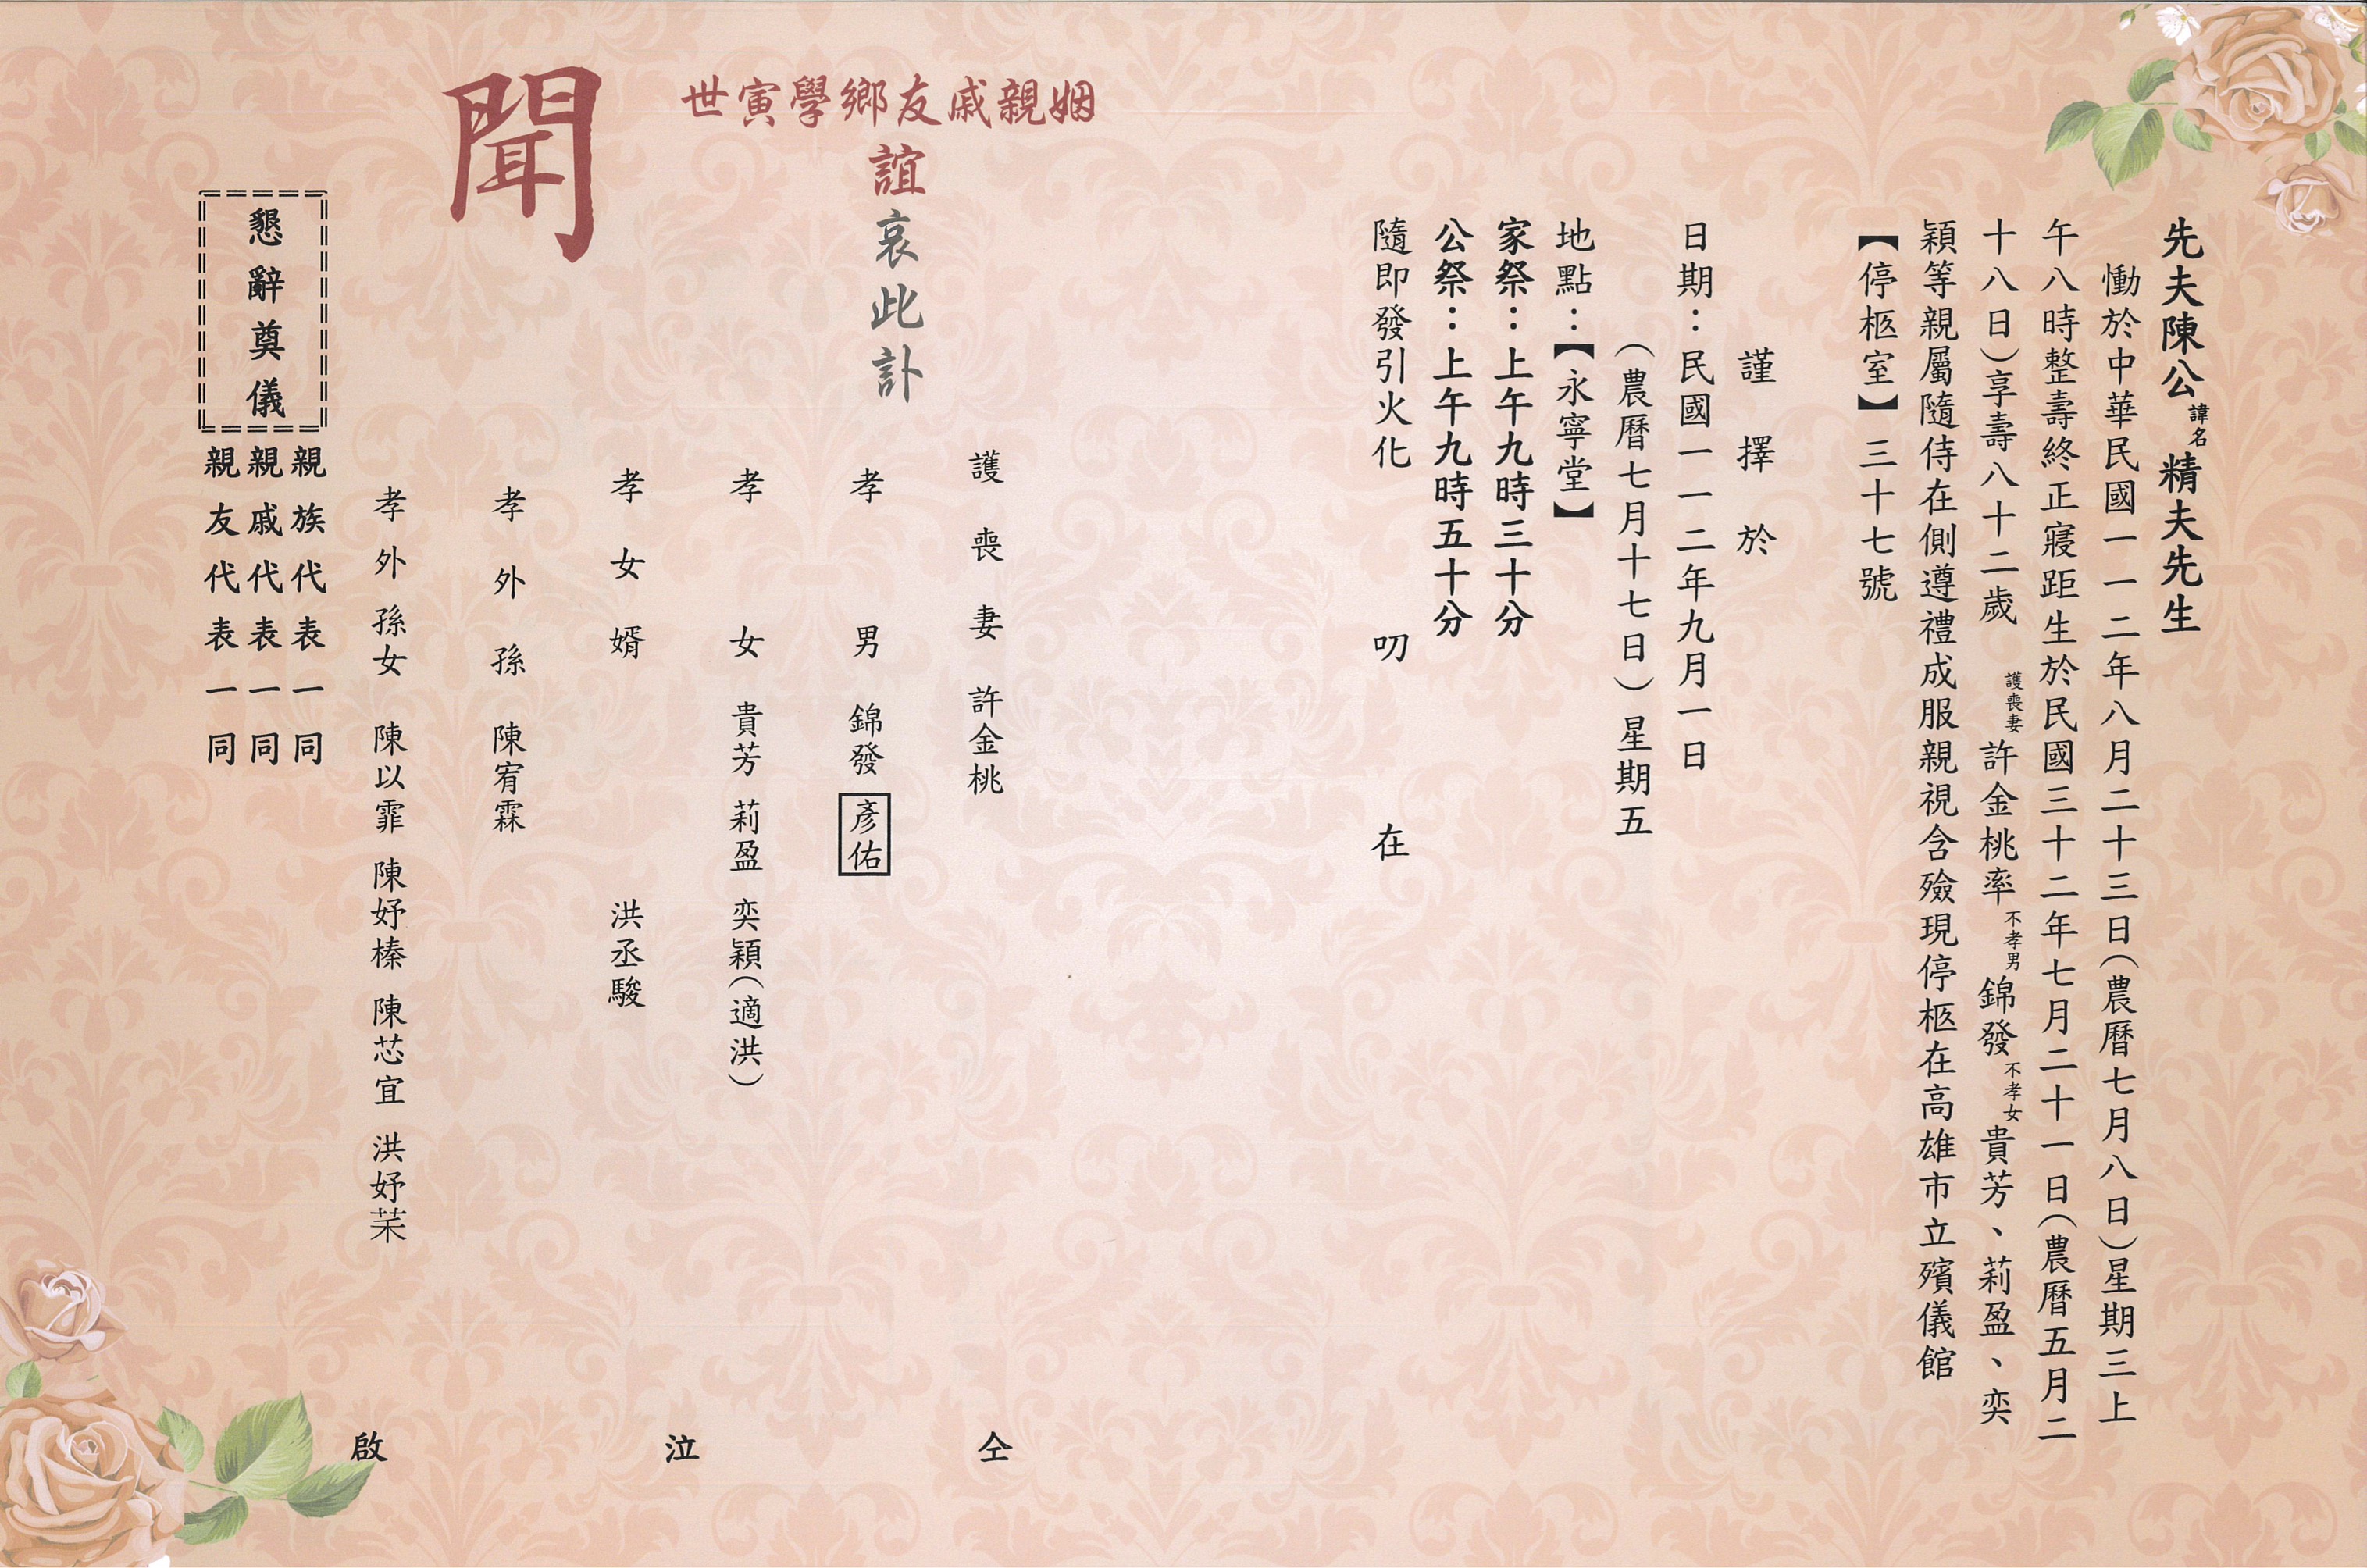 先夫陳公諱名精夫先生
慟於中華民國一一二年八月二十三日(農曆七月八日)星期三上
午八時整壽終正寢距生於民國三十二年七月二十一日(農曆五月二
十八日)享壽八十二歲 護喪妻許金桃率不孝男錦發不孝女貴芳、莉盈、奕
穎等親屬隨侍在側遵禮成服親視含殮現停柩在高雄市立殯儀館
【停柩室】三十七號
謹擇於
日期：民國一一二年九月一日
(農曆七月十七日)星期五
地點：【永寧堂】
家祭：上午九時三十分
公祭：上午九時五十分
隨即發引火化 叨 在
姻親戚友鄉學寅世
誼哀此訃
聞
護喪妻 許金桃
孝男 錦發 彥佑
孝女 貴芳 莉盈 奕穎(適洪)
孝女婿 洪丞駿
孝外孫 陳宥霖
孝外孫女 陳以霏 陳妤榛 陳芯宜 洪妤茉
仝 泣 啟
懇辭奠儀
親族代表一同
親戚代表一同
親友代表一同